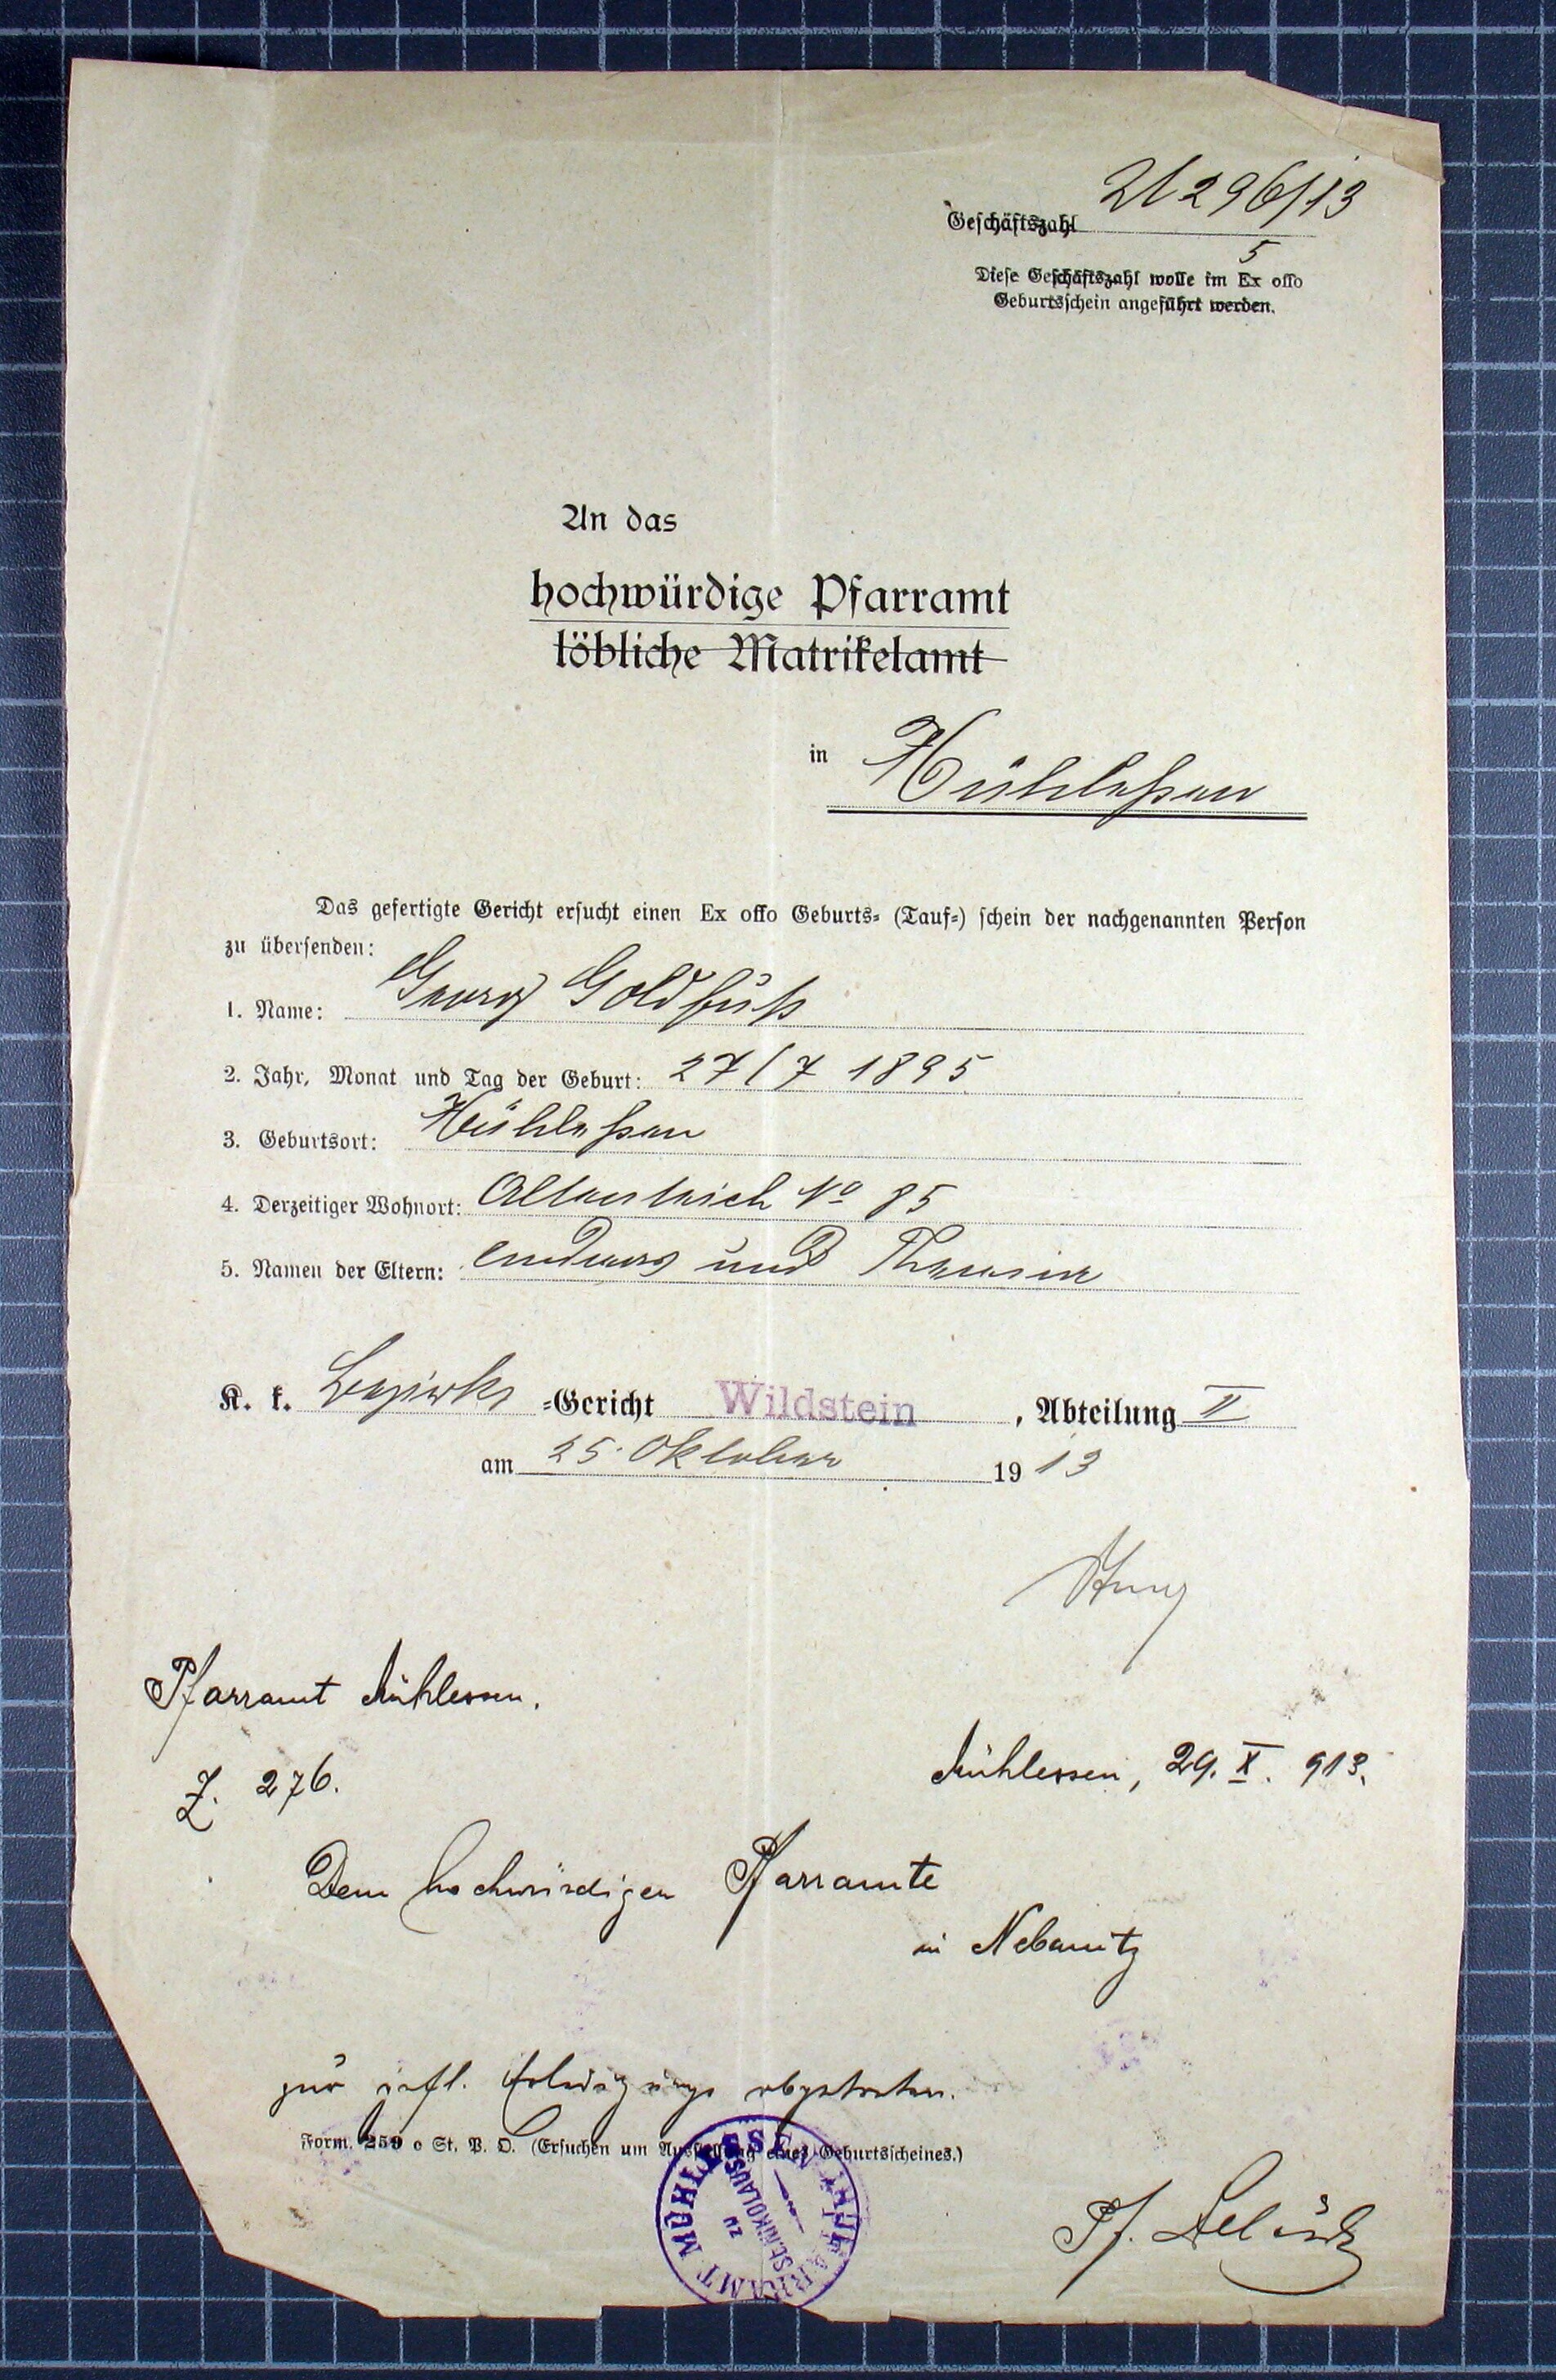 Geschäftszahl U 296/13
5
Diese Geschäftszahl wolle im Ex offo
Geburtsschein angeführt werden.
An das
hochwürdige Pfarramt
löbliche Matrikelamt
in Mühlessen
Das gefertigte Gericht ersucht einen Ex offo Geburts- (Tauf-) schein der nachgenannten Person
zu übersenden:
1. Name: Georg Goldfuß
2. Jahr, Monat und Tag der Geburt: 27/7 1895
3. Geburtsort: Mühlessen
4. Derzeitiger Wohnort: Altenteich No 85
5. Namen der Eltern: Andreas und Theresia
K. k. Bezirks -Gericht Wildstein, Abteilung II
am 25. Oktober 1913
Pfarramt Mühlessen.
Z. 276.
Mühlessen, 29. X. 913.
Dem hochwürdigen Pfarramte
in Nebanitz
zur gefl. Erledigung abgetreten.
Form. 259 c St. P. O. (Ersuchen um Ausstellung eines Geburtsscheines.)
PFARRAMT MÜHLESSEN
ZU
St. NIKOLAUS